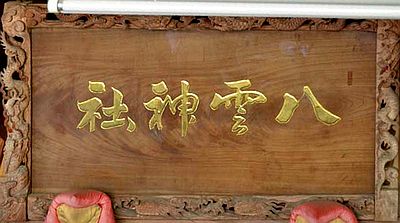 八雲神社